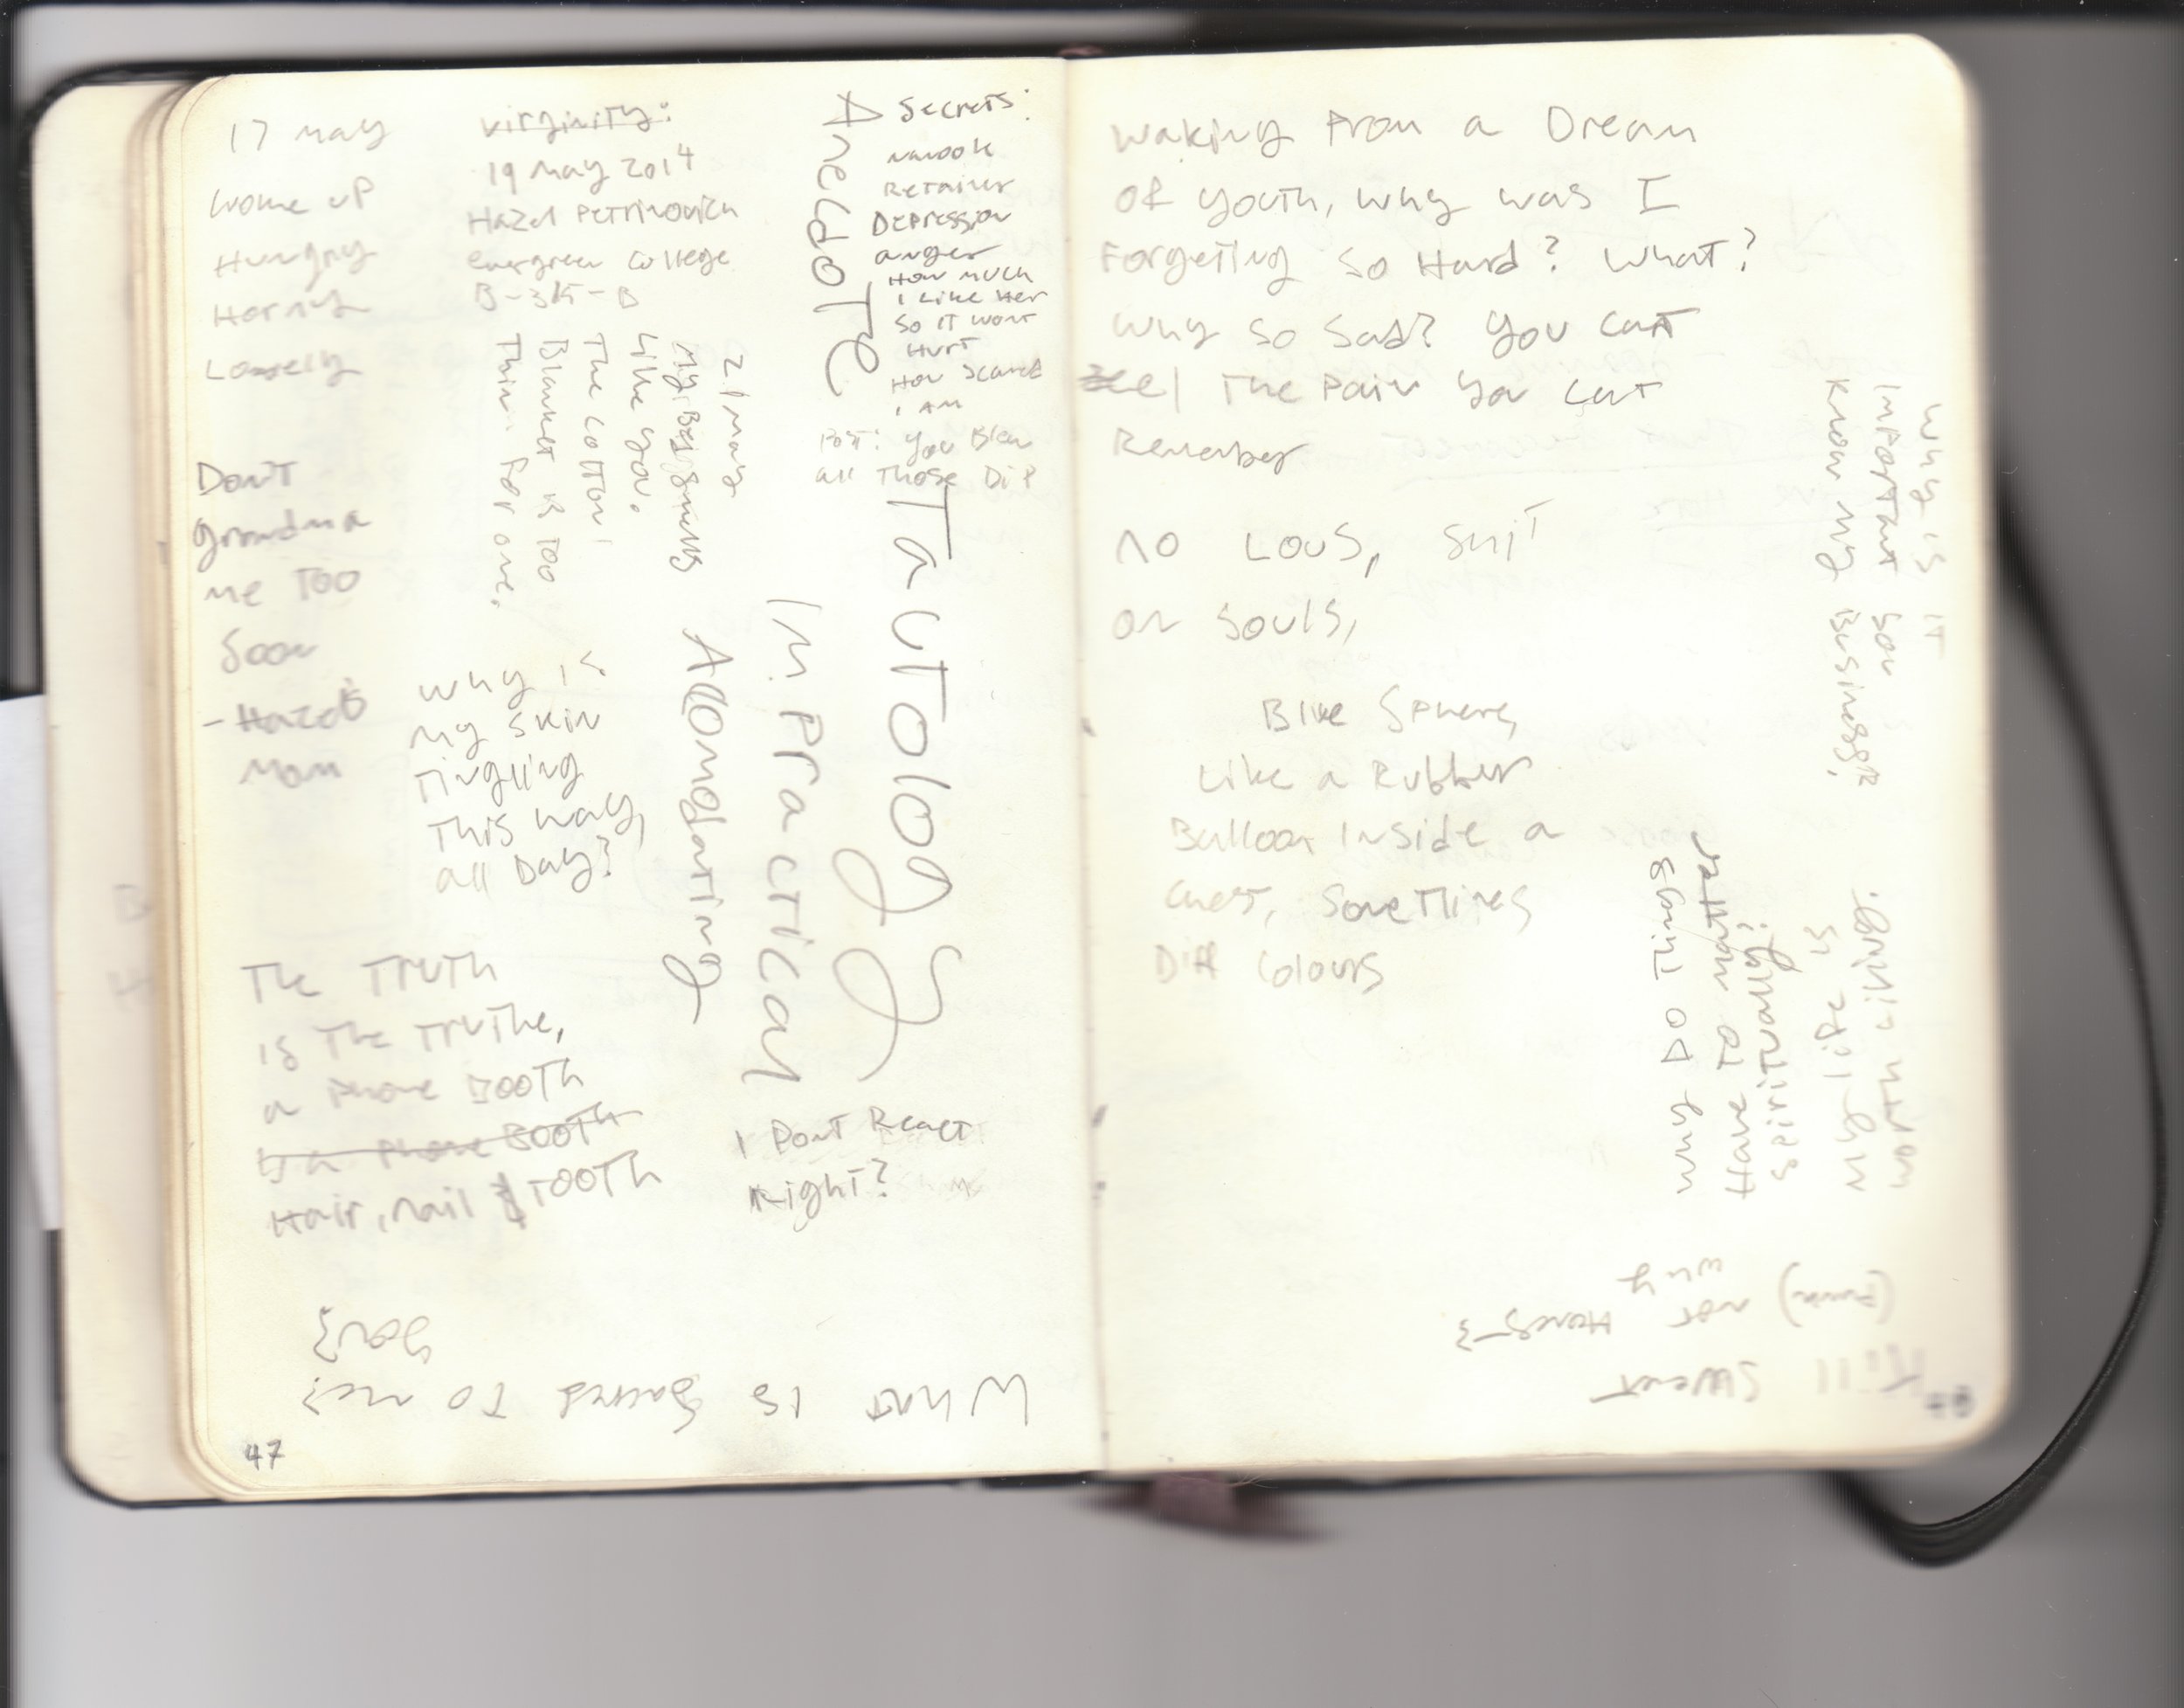 17 may
Woke up
Hungry
Horny
Lonely
Don't
Grandma
me Too
Soon
- Hazel's
Mom
virginity:
19 may 2014
Hazel Petrinovich
evergreen college
21 may
My Bed smells
Like you.
The cotton
Blanket is Too
Thin. For one.
why is
my skin
Tingling
This way,
all Day?
The TRUTH
is The TRUThe,
a phone BOOTh
is a phone BOOTh
Hair, nail & TOOTh
Anecdote
Secrets:
nanook
Retainer
Depression
anger
How much
I Like Her
So IT wont
Hurt
How Scared
I AM
Post: you Blew
all Those
TauTology
ImPracTical
Accomodating
I Dont React
Right?
What is Sacred To me?
you?
47
Waking From a Dream
Of youth, why was I
Forgetting So Hard? What?
Why So Sad? You Cant
eel The Pain you Cant
Remember
NO LOVS, SHIT
On Souls,
Blue Sphere,
Like a Rubber
Balloon Inside a
Chest, SomeTimes
Diff Colours
Why is IT
ImporTant you
Know my Business?
Why DO Things
Have TO maTTer
SpiriTually?
My Life is
worTh Living.
Kill Sweat
not Honest
why
48